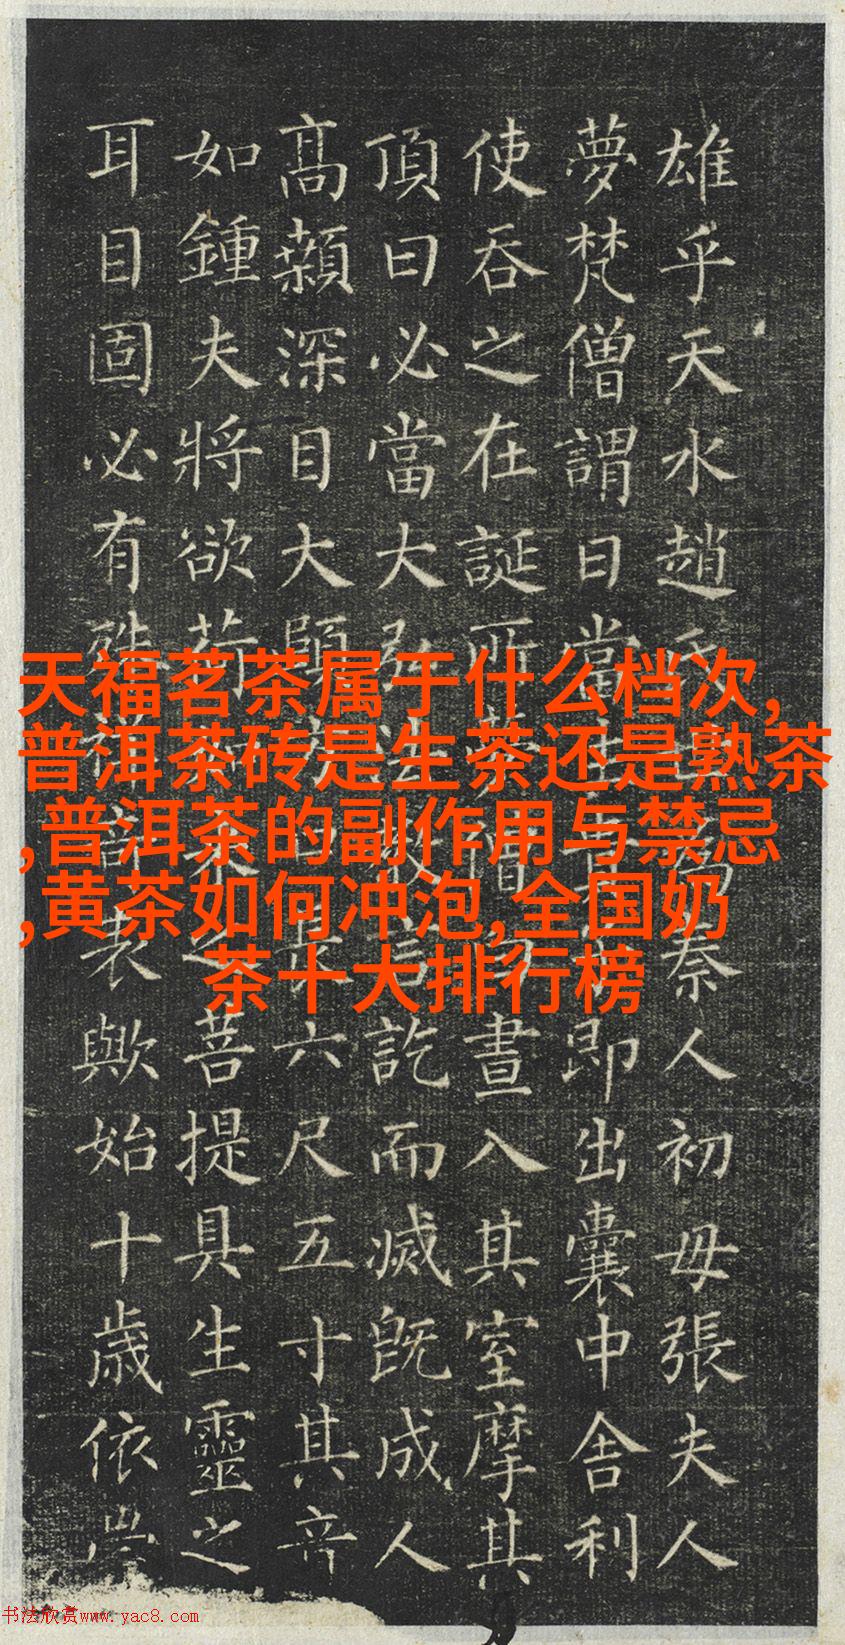 天福茗茶属于什么档次,
普洱茶砖是生茶还是熟茶
,普洱茶的副作用与禁忌
,黄茶如何冲泡,全国奶
茶十大排行榜
雄乎天水趙氏為秦人初母張夫人
夢梵僧謂曰當生即出囊中舍利
使吞之在誕所夢僧白晝入其室摩其
頂曰必當大弘法教言訖而滅既成人
高顙深目大頤方口長六尺五寸其音
如鍾夫將欲荷來之菩提具生靈之
耳目固必有殊祥奇表歟始十歲依
书法欣赏www.yac8.com